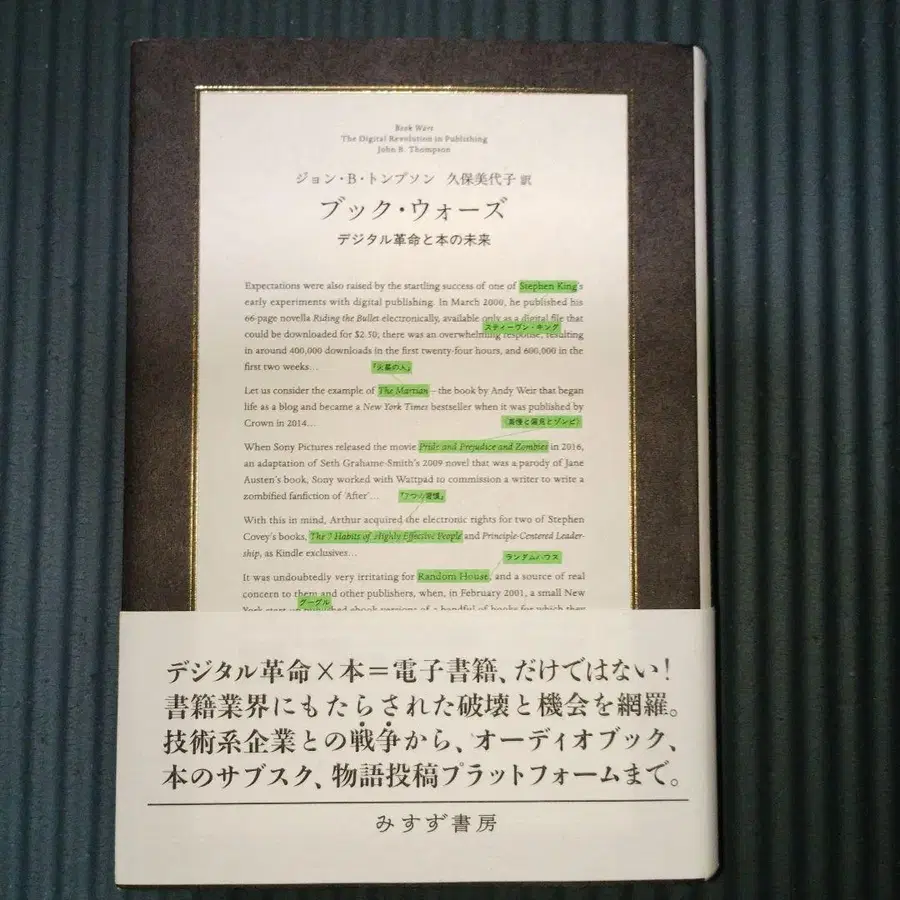 Book Wars
The Digital Revolution in Publishing
John B. Thompson
ジョン・B・トンプソン 久保美代子 訳
ブック・ウォーズ
デジタル革命と本の未来
Expectations were also raised by the startling success of one of Stephen King's
early experiments with digital publishing. In March 2000, he published his
66-page novella Riding the Bullet electronically, available only as a digital file that
スティーヴン・キング
could be downloaded for $2.50; there was an overwhelming response, resulting
in around 400,000 downloads in the first twenty-four hours, and 600,000 in the
first two weeks…
『火星の人』
Let us consider the example of The Martian – the book by Andy Weir that began
life as a blog and became a New York Times bestseller when it was published by
Crown in 2014…
『高慢と偏見とゾンビ』
When Sony Pictures released the movie Pride and Prejudice and Zombies in 2016,
an adaptation of Seth Grahame-Smith's 2009 novel that was a parody of Jane
Austen's book, Sony worked with Wattpad to commission a writer to write a
zombified fanfiction of 'After'…
『7つの習慣』
With this in mind, Arthur acquired the electronic rights for two of Stephen
Covey's books, The 7 Habits of Highly Effective People and Principle-Centered Leader-
ship, as Kindle exclusives…
ランダムハウス
It was undoubtedly very irritating for Random House, and a source of real
concern to them and other publishers, when, in February 2001, a small New
グーグル
York start-up published ebook versions of a handful of books for which they
デジタル革命×本＝電子書籍、だけではない！
書籍業界にもたらされた破壊と機会を網羅。
技術系企業との戦争から、オーディオブック、
本のサブスク、物語投稿プラットフォームまで。
みすず書房